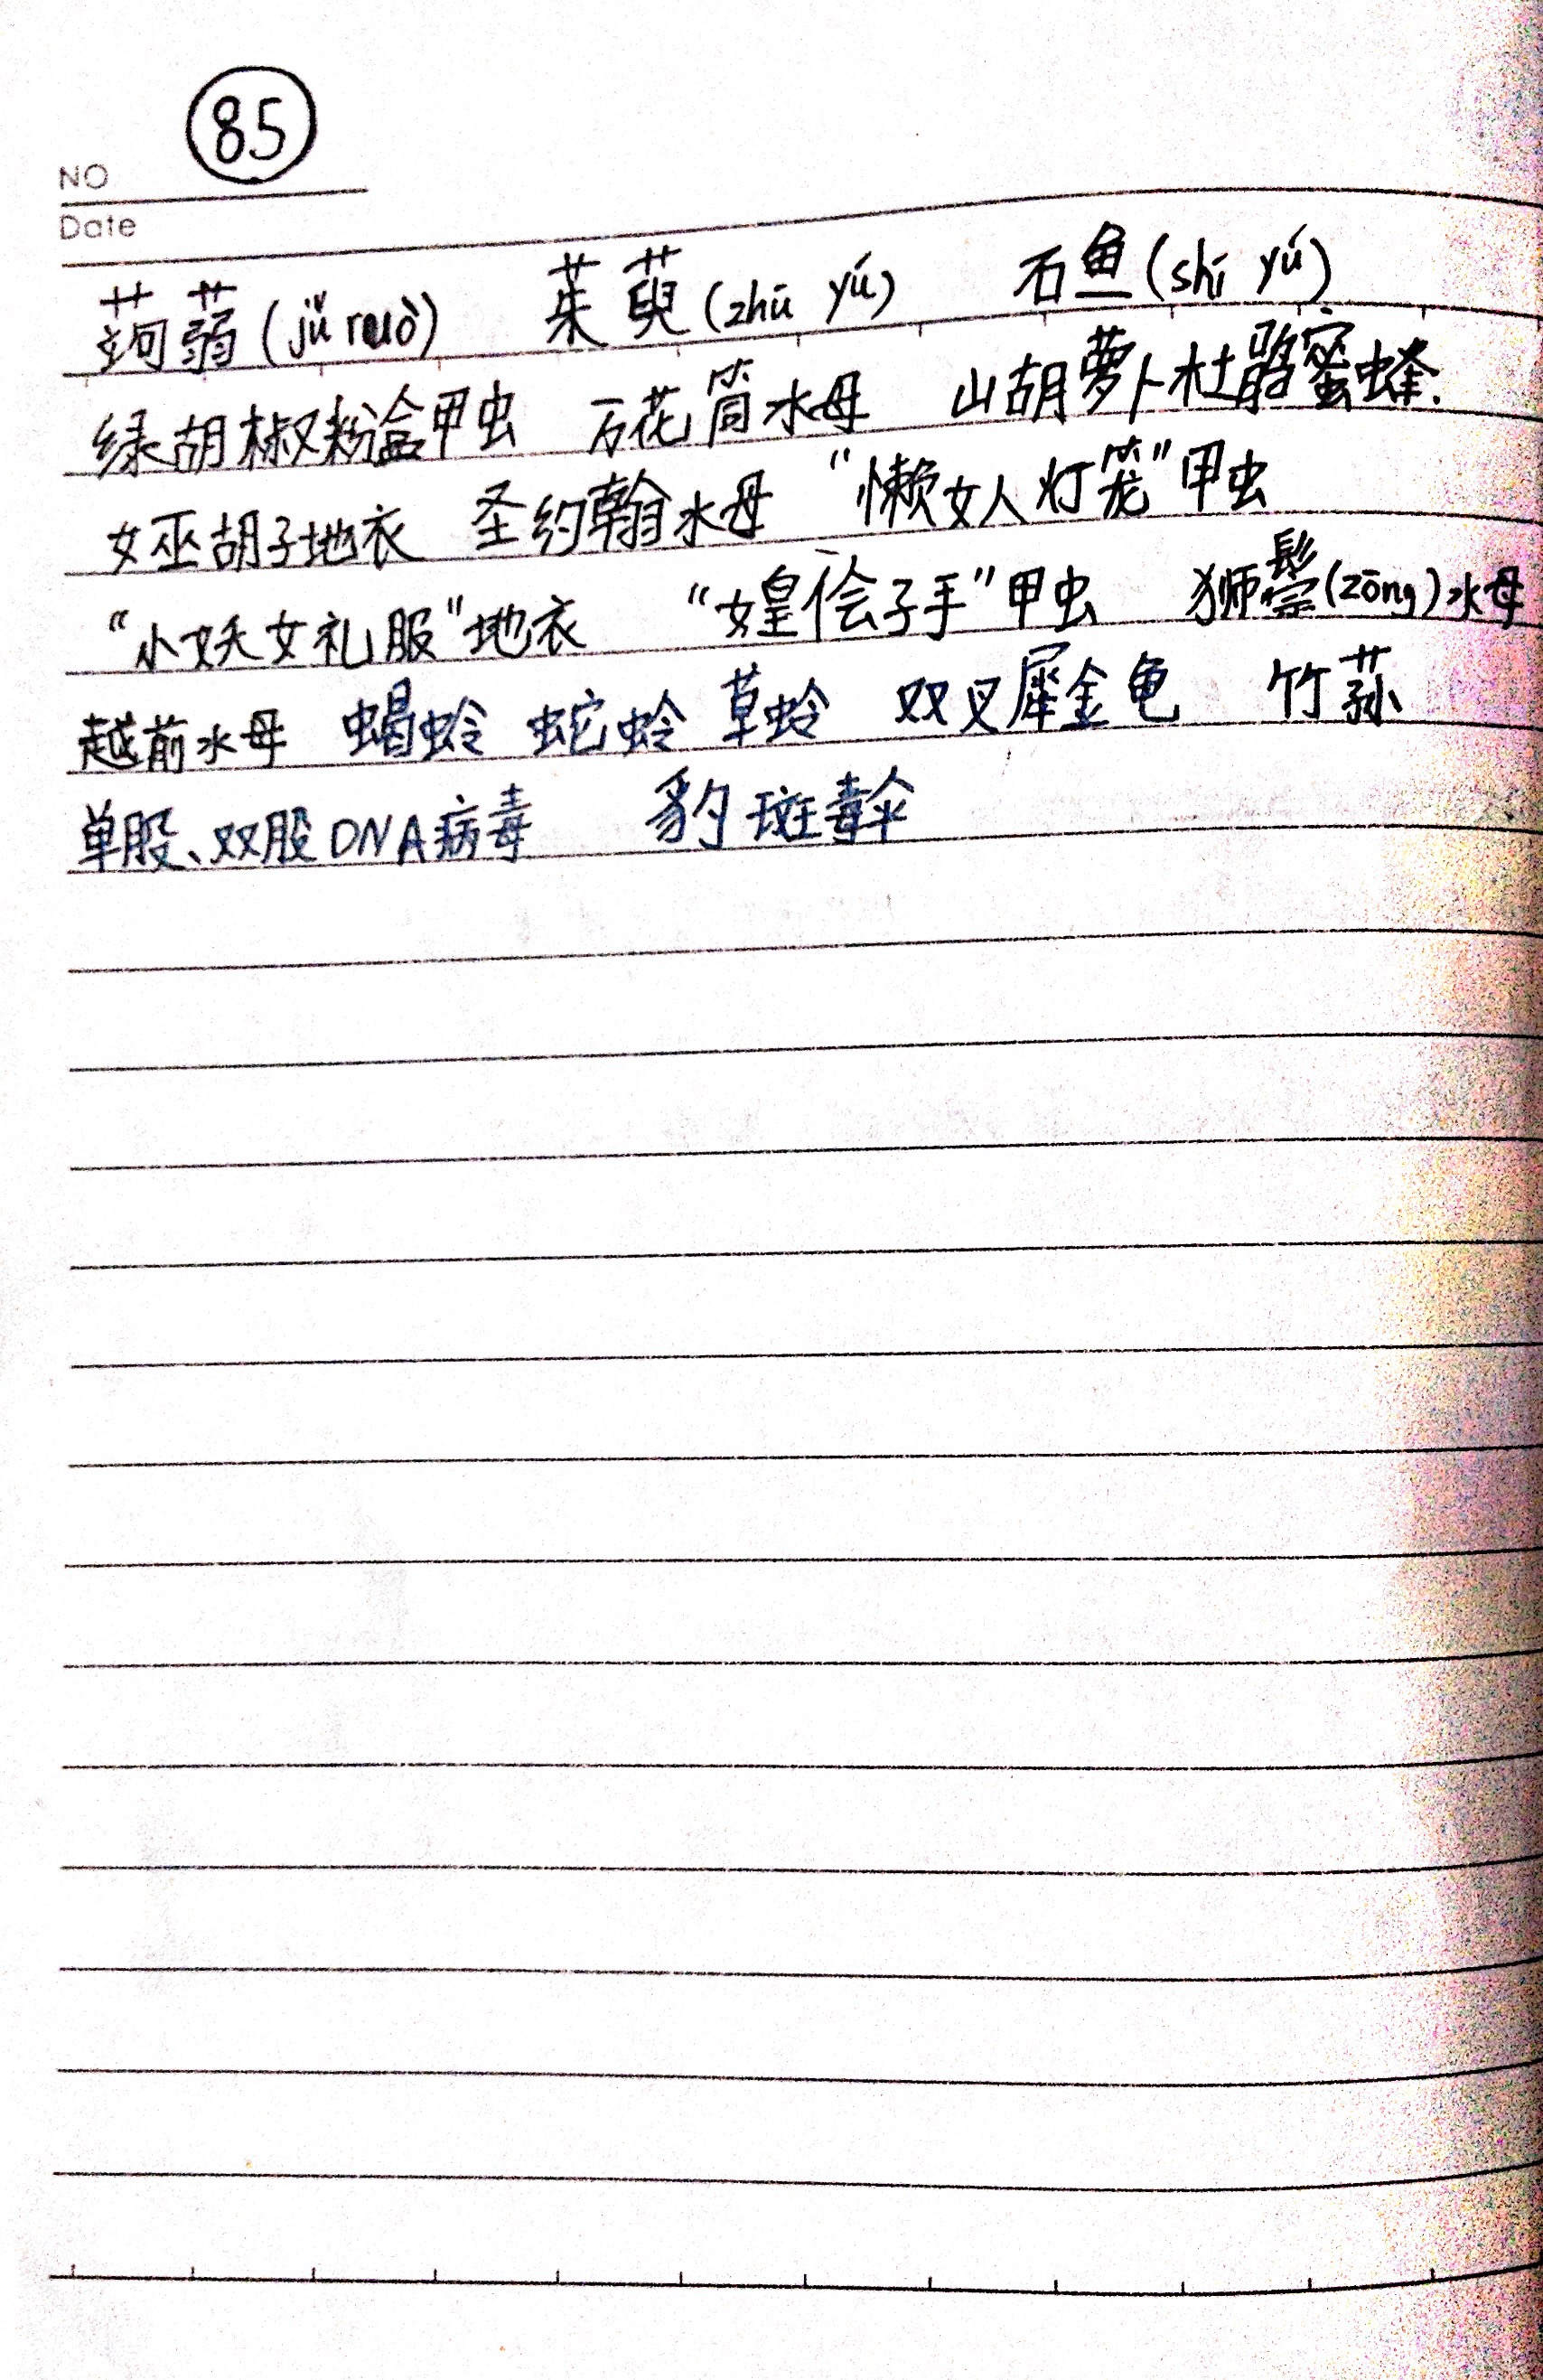 85
NO
Date
蒟蒻(jǔ ruò) 茱萸(zhū yú) 石鱼(shí yú)
绿胡椒粉盒甲虫 万花筒水母 山胡萝卜杜鹃蜜蜂.
女巫胡子地衣 圣约翰水母 “懒女人灯笼”甲虫
“小妖女礼服”地衣 “女皇侩子手”甲虫 狮鬃(zōng)水母
越前水母 蝎蛉 蛇蛉 草蛉 双叉犀金龟 竹荪
单股、双股DNA病毒 豹斑毒伞